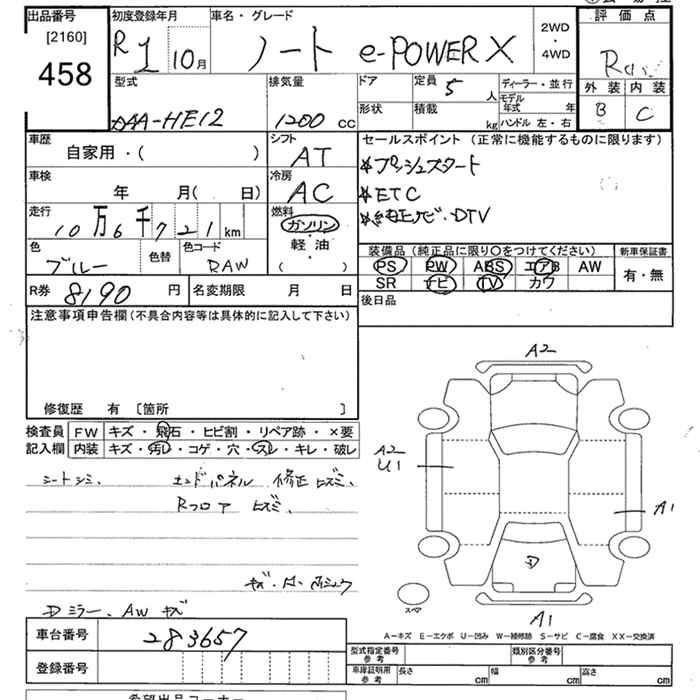 出品番号 初度登録年月 車名・グレード 評価点
[2160]
458
R1 10月 ノート e-POWER X 2WD・4WD
外装 内装
B C
型式 排気量 ドア 定員 5人 ディーラー・並行
DAA-HE12 1200 cc 形状 積載 kg モデル年式 年
ハンドル 左・右
車歴 シフト セールスポイント(正常に機能するものに限ります)
自家用・( ) AT ★プッシュスタート
車検 冷房
年 月( 日) AC ★ETC
走行 燃料 ★純正ナビ・DTV
10万6千721km ガソリン・軽油( )
色 色替 色コード 装備品(純正品に限り○をつけてください) 新車保証書
ブルー RAW PS PW ABS エアB AW 有・無
SR ナビ TV カワ
R券 8190円 名変期限 月 日 後日品
注意事項申告欄(不具合内容等は具体的に記入して下さい)
修復歴 有 〔箇所 〕
検査員記入欄 FW キズ・飛石・ヒビ割・リペア跡・×要
内装 キズ・汚レ・コゲ・穴・スレ・キレ・破レ
シートシミ、 エンドパネル 修正 ヒズミ、
Rフロア ヒズミ、
Dミラー、AW キズ
A2
A2
U1
A1
D
スペア
A1
A-キズ E-エクボ U-凹み W-補修跡 S-サビ C-腐食 XX-交換済
車台番号 283657
登録番号
型式指定番号 参考 類別区分番号 参考
車庫証明用 参考 長さ cm 幅 cm 高さ cm
希望出品コーナー